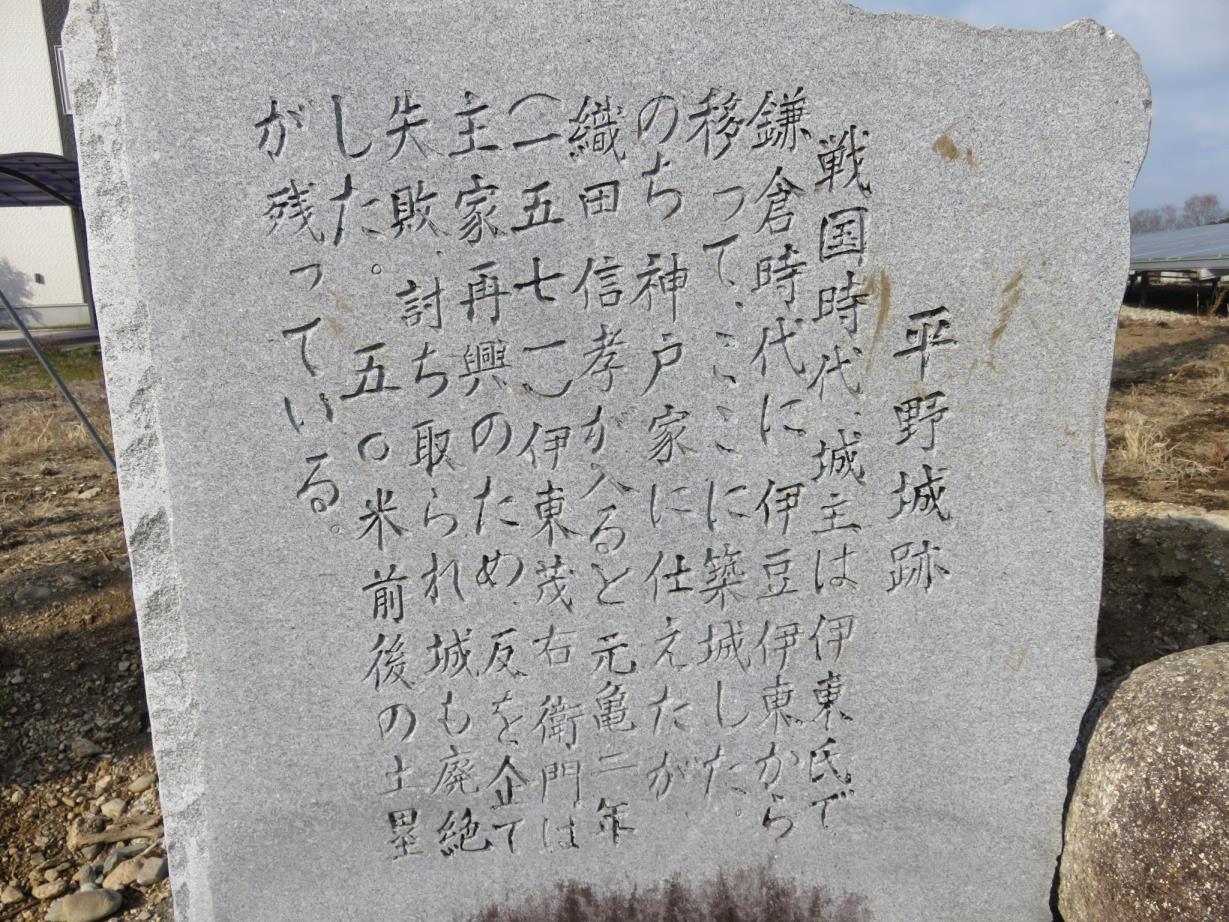 平野城跡
戦国時代、城主は伊東氏で
鎌倉時代に伊豆伊東から
移って、ここに築城した。
のち神戸家に仕えたが
織田信孝が入ると元亀二年
（一五七一）伊東茂右衛門は
主家再興のため、反を企て
失敗、討ち取られ城も廃絶
した。五〇米前後の土塁
が残っている。